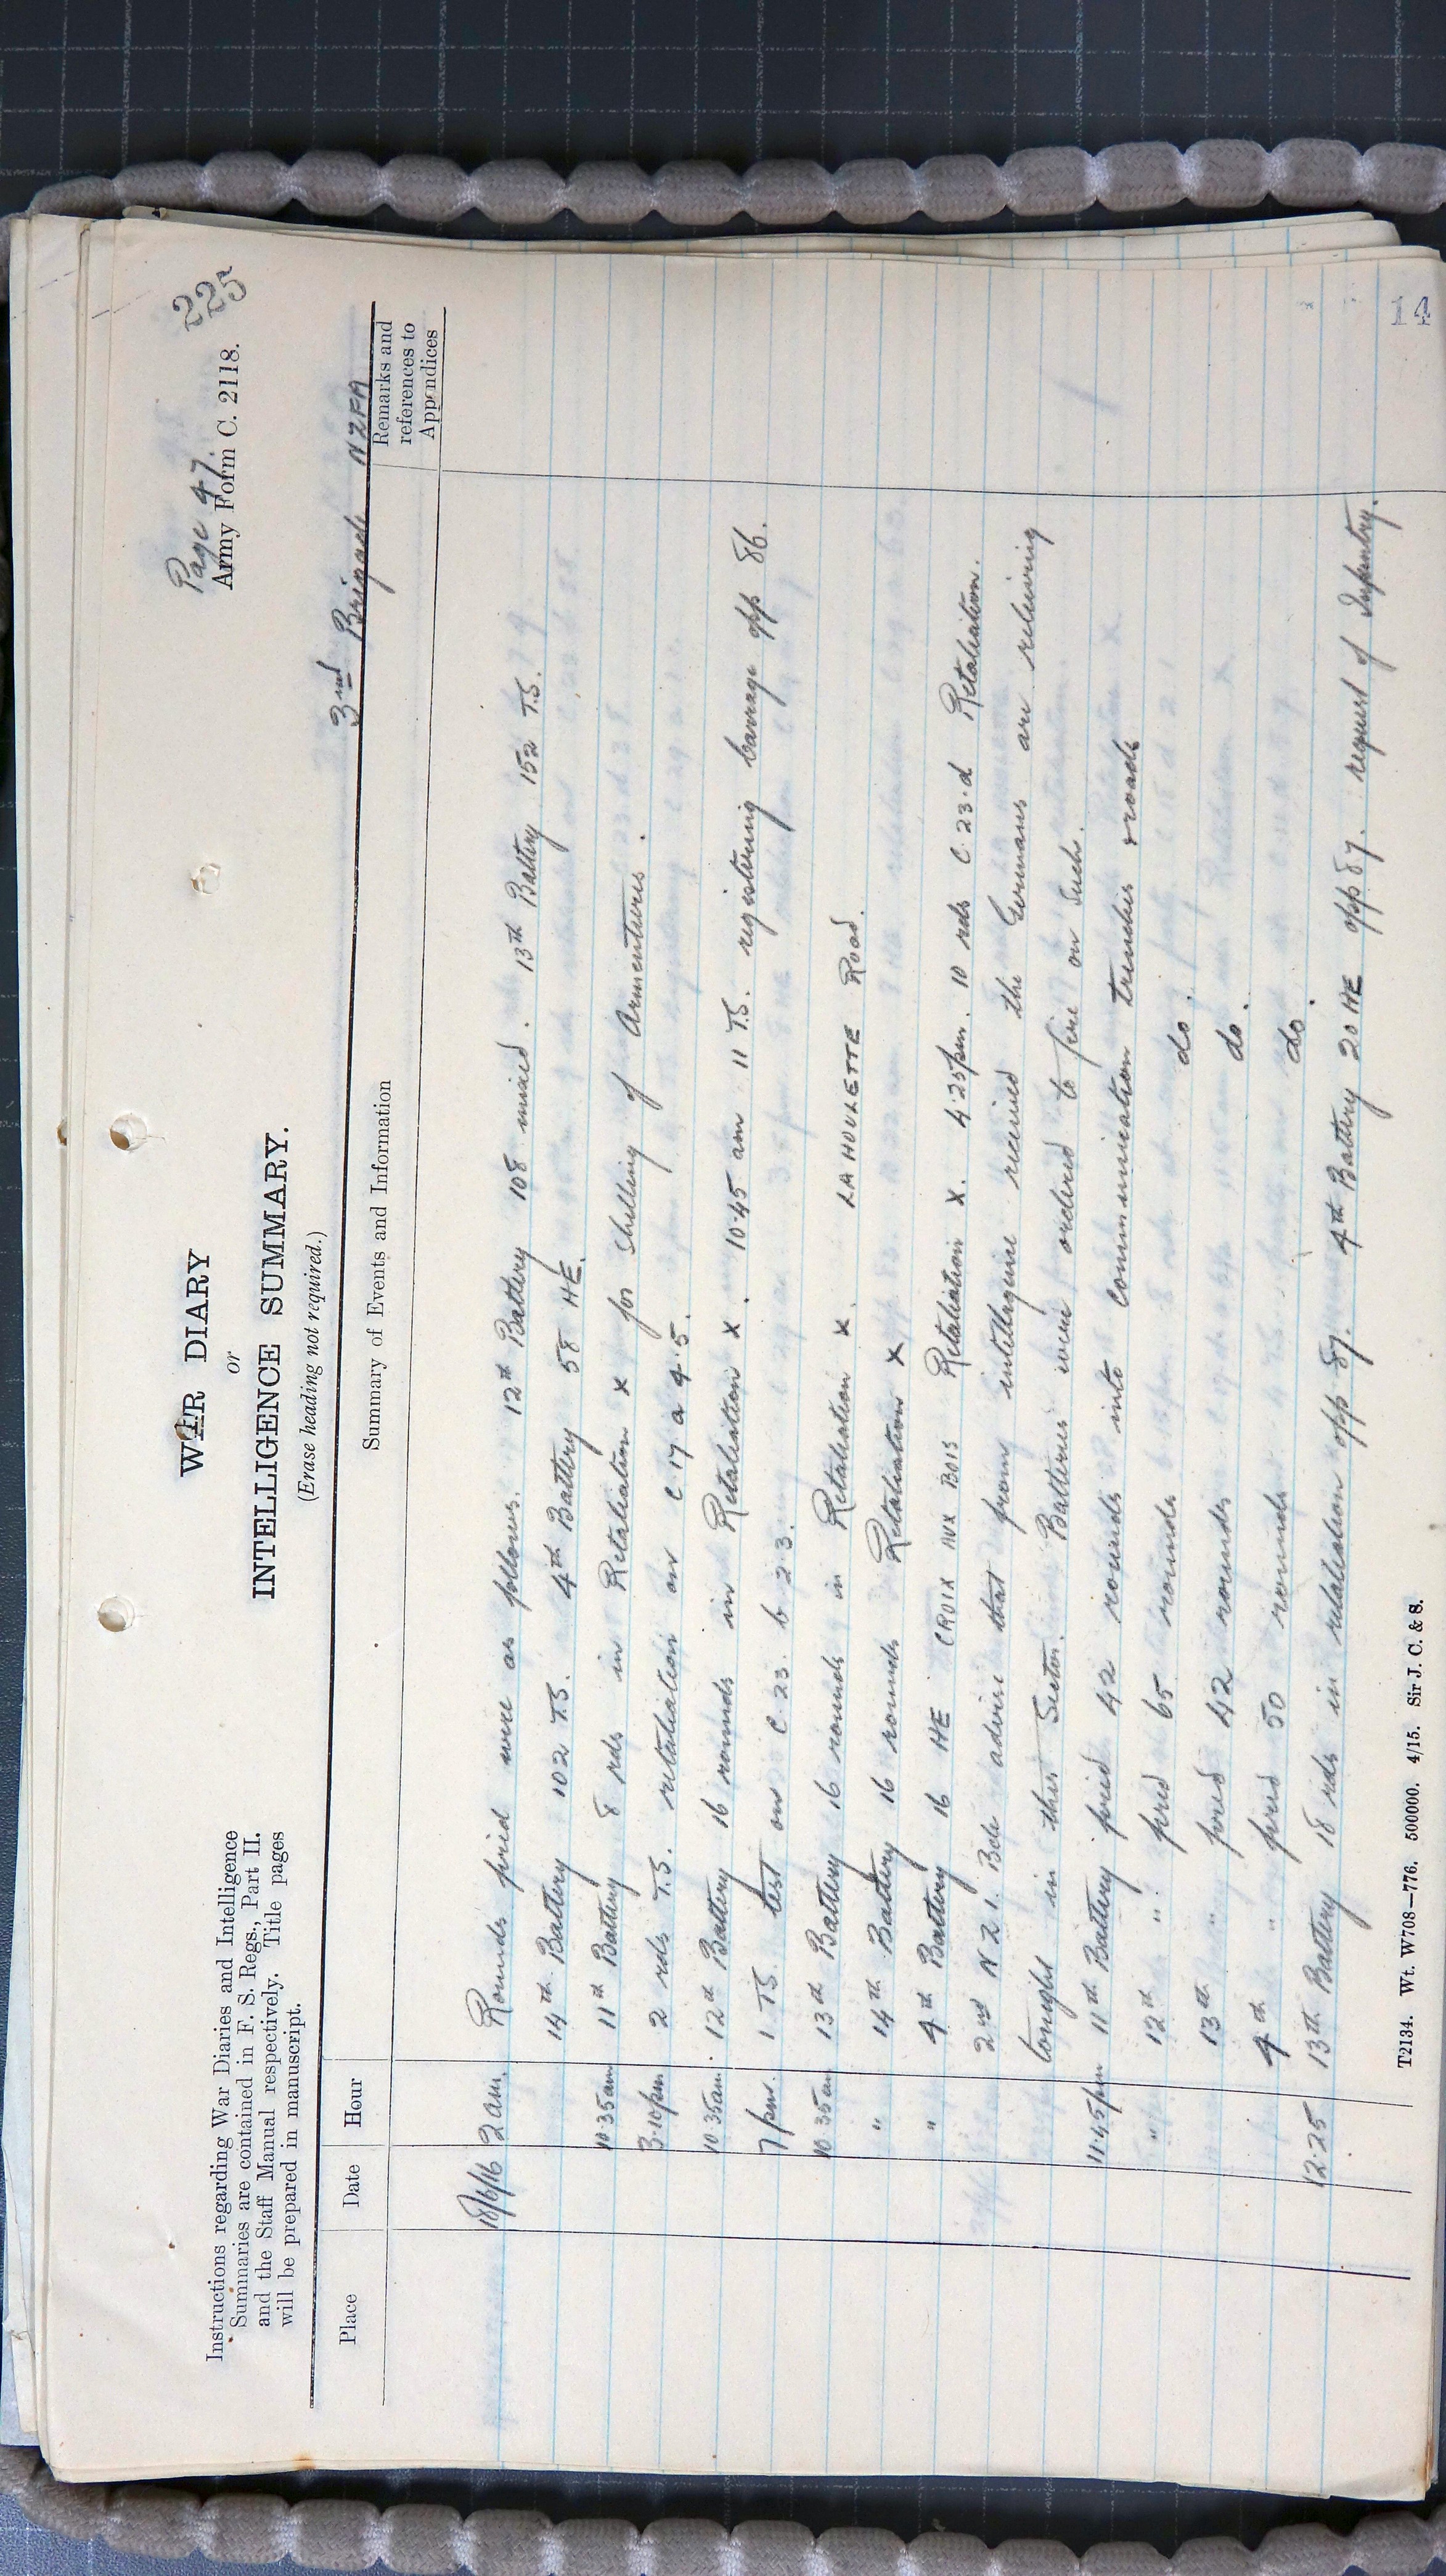 Page 47.
225
Army Form C. 2118.
WAR DIARY
or
INTELLIGENCE SUMMARY.
(Erase heading not required.)
Instructions regarding War Diaries and Intelligence
Summaries are contained in F. S. Regs., Part II.
and the Staff Manual respectively. Title pages
will be prepared in manuscript.
3rd Brigade NZFA
Place Date Hour Summary of Events and Information Remarks and references to Appendices
18/6/16 2 am. Rounds fired were as follows. 12th Battery 108 mixed. 13th Battery 152 T.S.
14th Battery 102 T.S. 4th Battery 58 HE.
10.35am 11th Battery 8 rds in Retaliation X for shelling of Armentieres.
3.10pm 2 rds T.S. retaliation on C 17 a 4.5.
10.35am. 12th Battery 16 rounds in Retaliation X. 10.45 am 11 T.S. registering barrage opp 86.
7 pm. 1 TS test on C 23. b 2.3.
10.35am 13th Battery 16 rounds in Retaliation X. LA HOULETTE Road.
" 14th Battery 16 rounds Retaliation X
" 4th Battery 16 HE CROIX AUX BOIS Retaliation X. 4.25pm. 10 rds C.23.d Retaliation.
2nd N Z I. Bde advise that from intelligence received the Germans are relieving
tonight in this Sector. Batteries were ordered to fire on such.
11.45pm 11th Battery fired 42 rounds into communication trenches & roads
" 12th " fired 65 rounds do.
13th " fired 42 rounds do.
4th " fired 50 rounds do.
12.25 13th Battery 18 rds in retaliation opp 87. 4th Battery 20 HE opp 87. request of Infantry.
T2134. Wt. W708—776. 500000. 4/15. Sir J. C. & S.
14